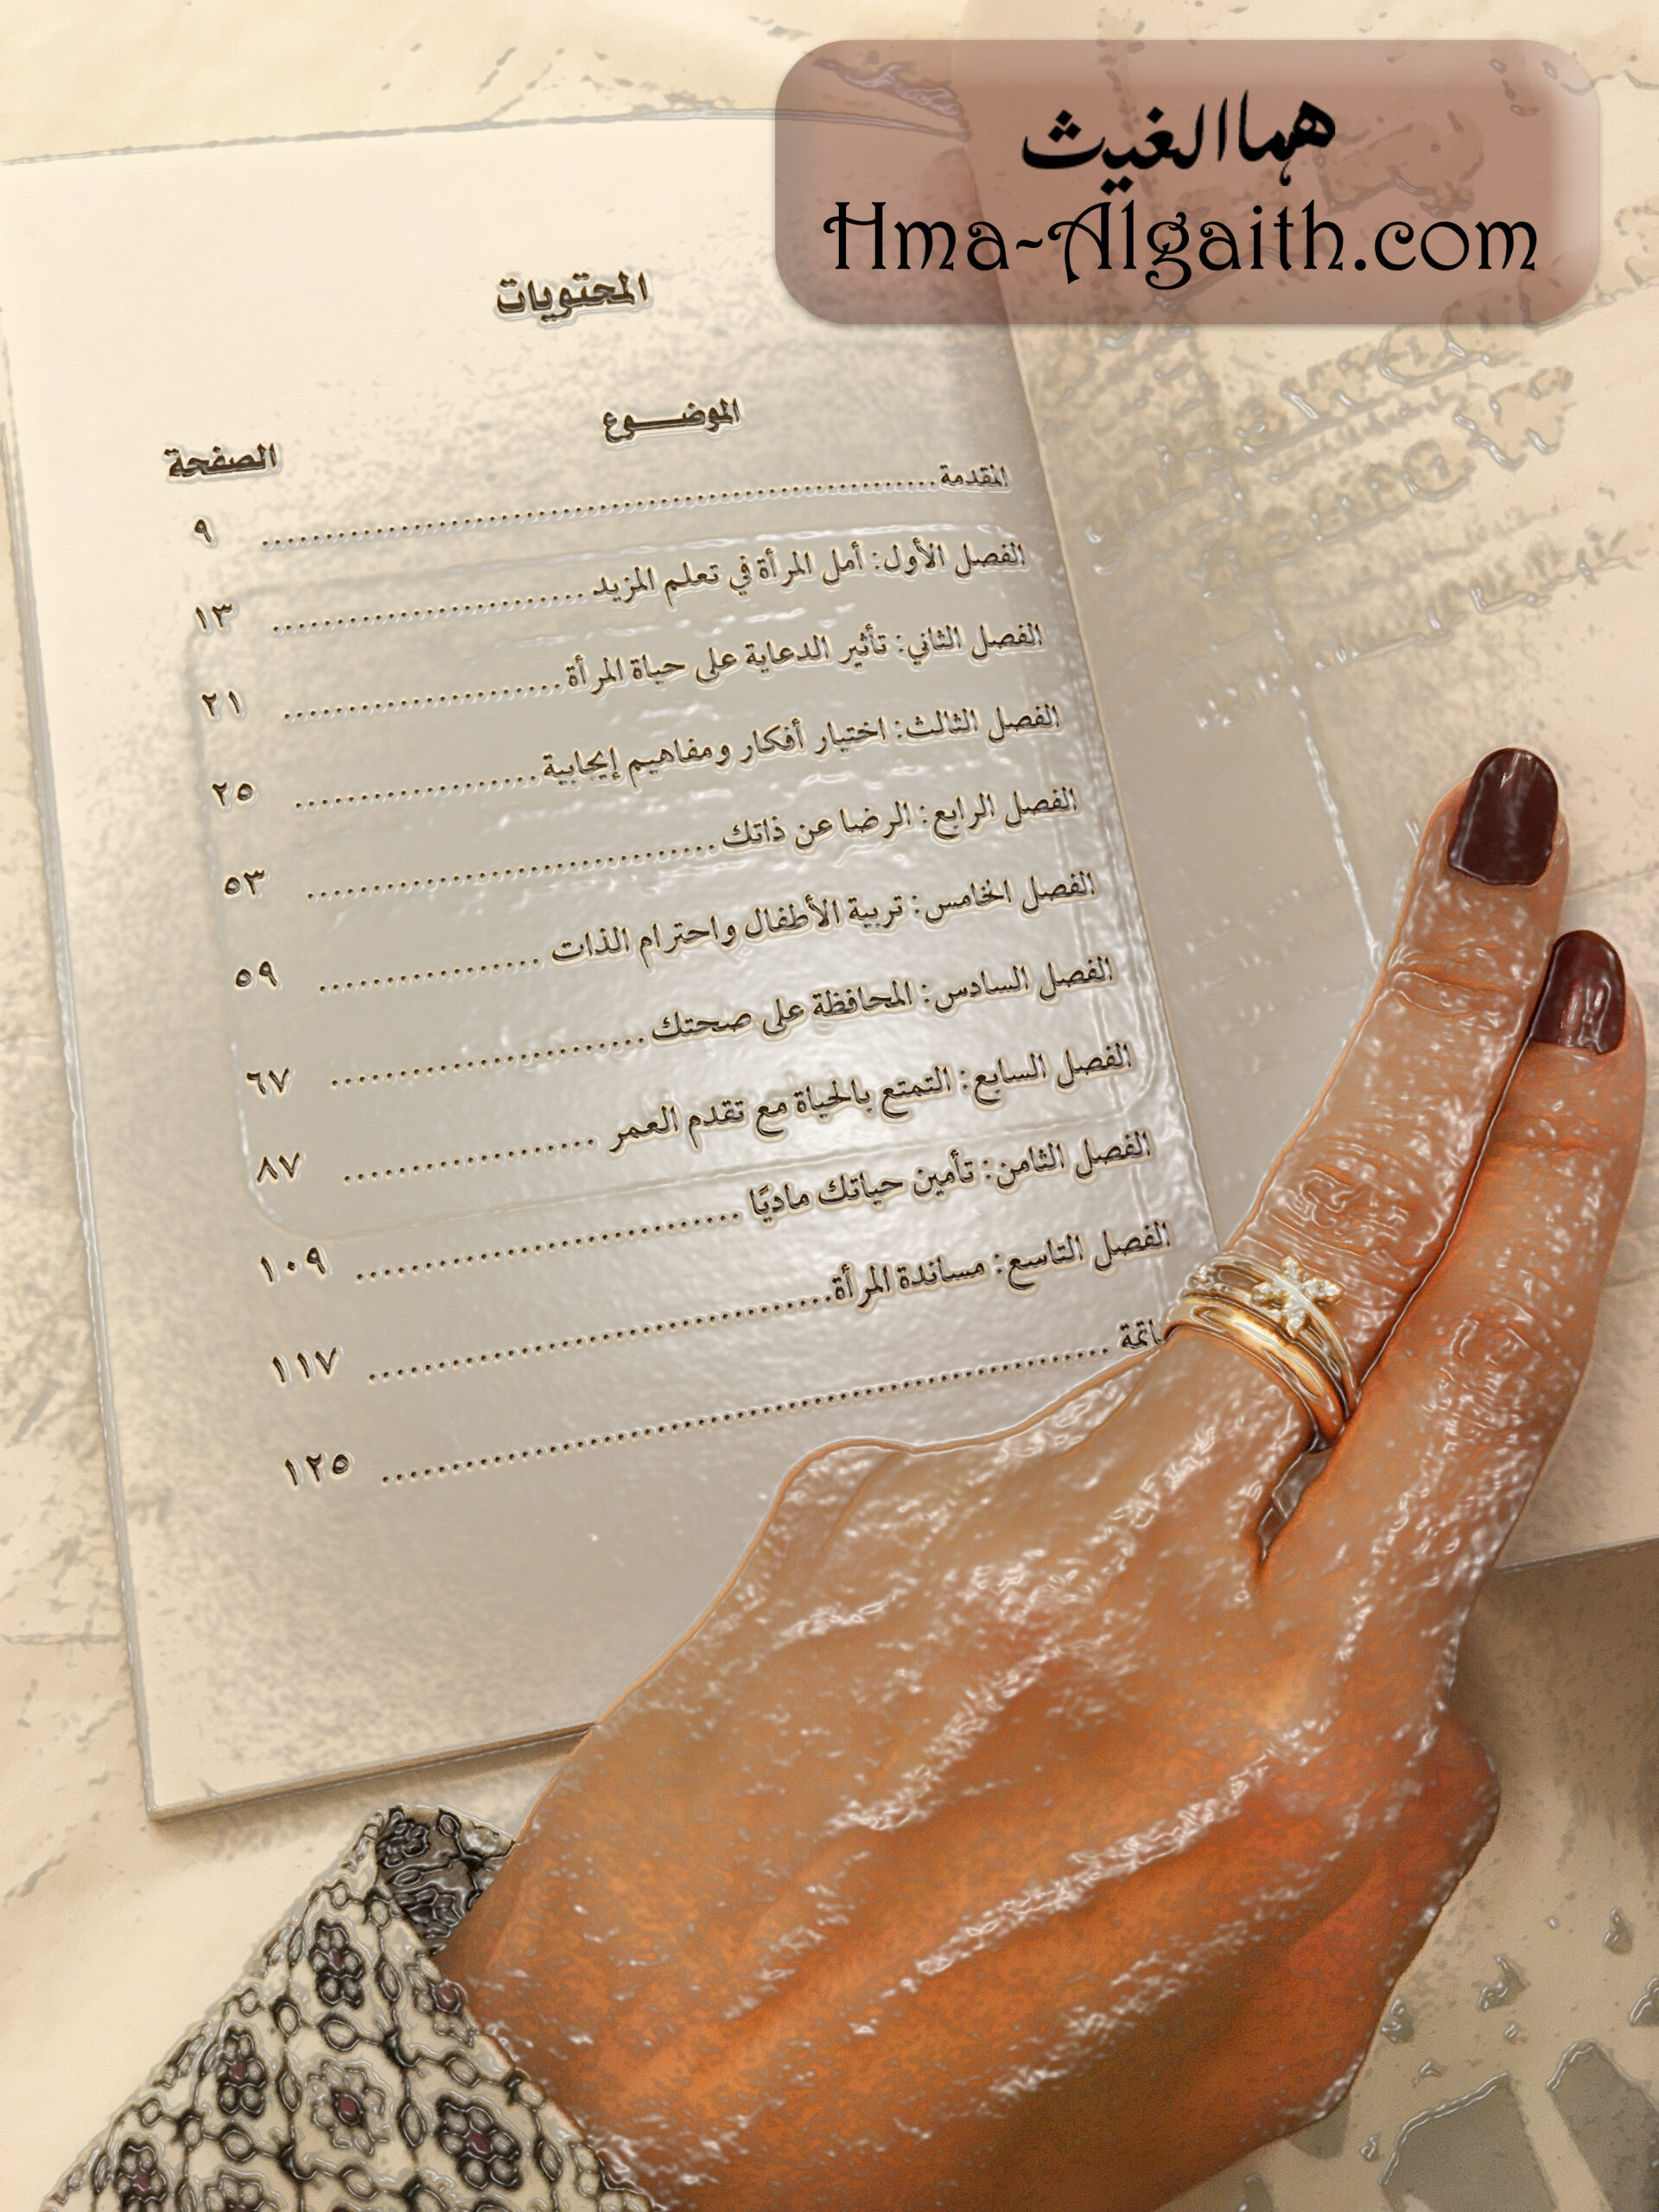 هما الغيث
Hma-Algaith.com
المحتويات
الموضـــوع
الصفحة
المقدمة........................................................ ٩
الفصل الأول: أمل المرأة في تعلم المزيد.......................... ١٣
الفصل الثاني: تأثير الدعاية على حياة المرأة...................... ٢١
الفصل الثالث: اختيار أفكار ومفاهيم إيجابية.................... ٢٥
الفصل الرابع: الرضا عن ذاتك................................ ٥٣
الفصل الخامس: تربية الأطفال واحترام الذات .................. ٥٩
الفصل السادس: المحافظة على صحتك......................... ٦٧
الفصل السابع: التمتع بالحياة مع تقدم العمر .................... ٨٧
الفصل الثامن: تأمين حياتك ماديًا ............................. ١٠٩
الفصل التاسع: مساندة المرأة................................... ١١٧
اتمة ......................................................... ١٢٥